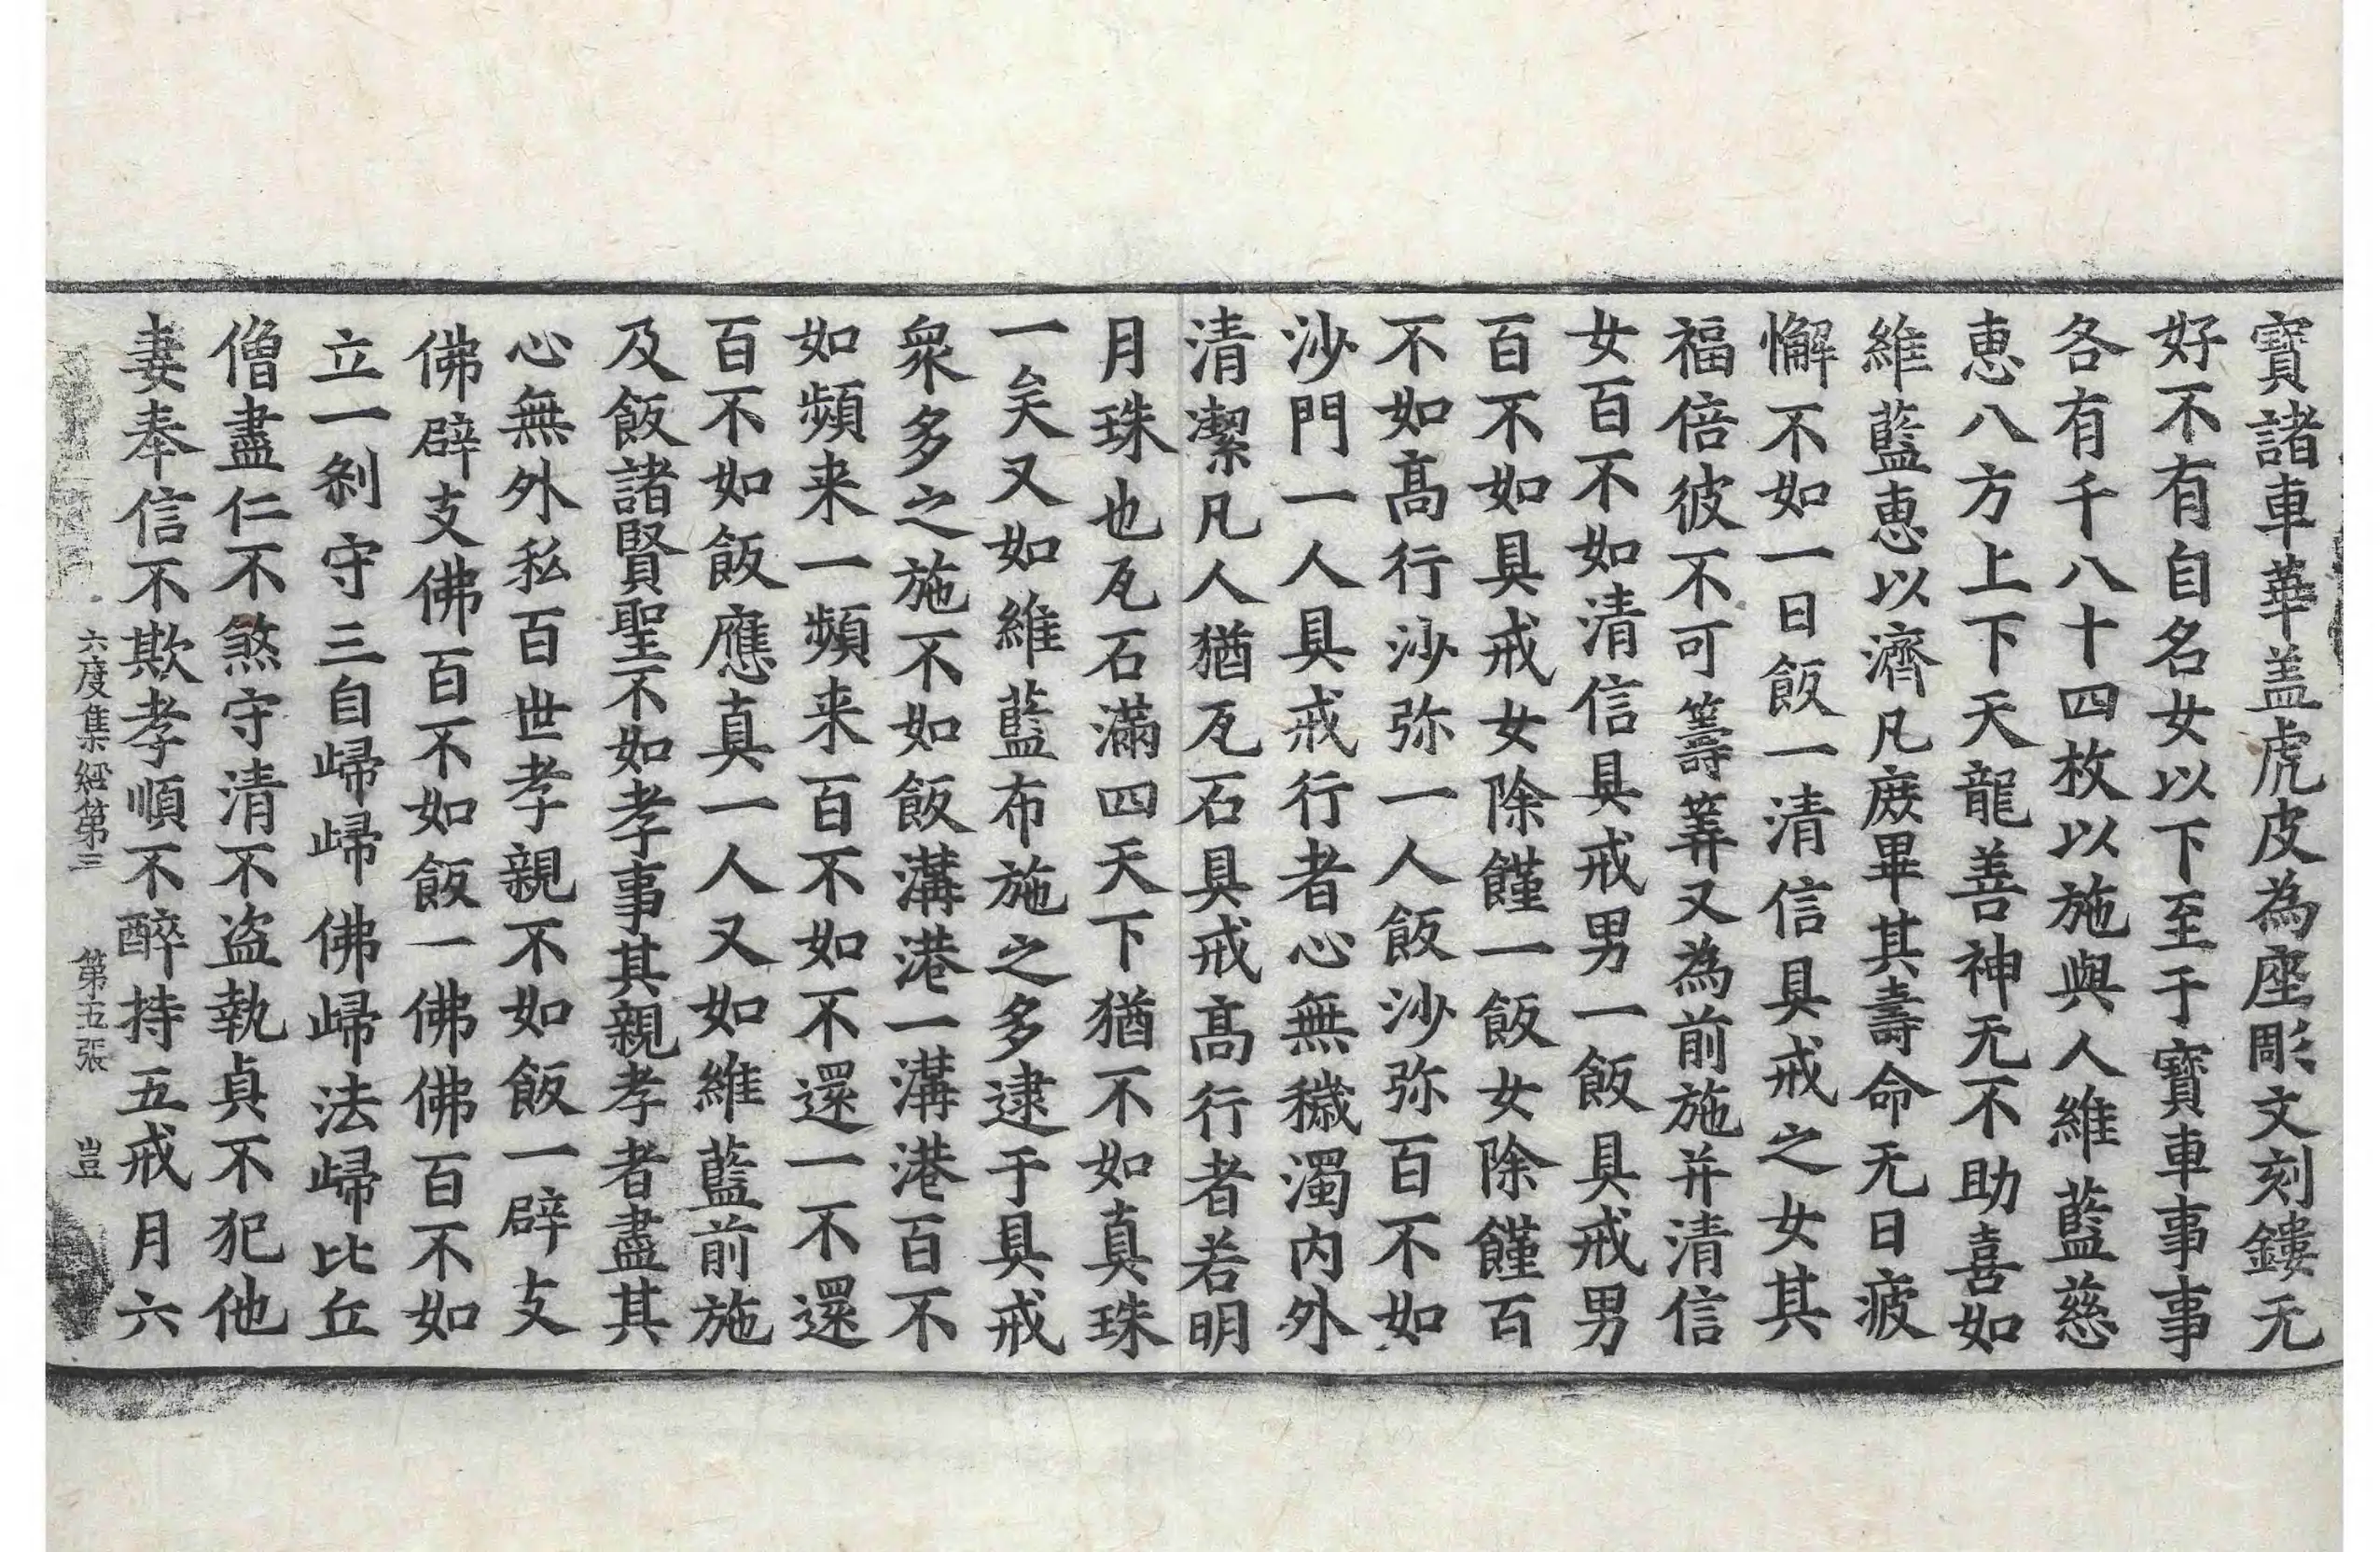 寶諸車華盖虎皮為座彫文刻鏤无
好不有自名女以下至于寶車事事
各有千八十四枚以施與人維藍慈
恵八方上下天龍善神无不助喜如
維藍恵以濟凡庶畢其壽命无日疲
懈不如一日飯一清信具戒之女其
福倍彼不可籌筭又為前施并清信
女百不如清信具戒男一飯具戒男
百不如具戒女除饉一飯女除饉百
不如髙行沙弥一人飯沙弥百不如
沙門一人具戒行者心無穢濁内外
清潔凡人猶瓦石具戒髙行者若明
月珠也瓦石滿四天下猶不如真珠
一矣又如維藍布施之多逮于具戒
衆多之施不如飯溝港一溝港百不
如頻来一頻来百不如不還一不還
百不如飯應真一人又如維藍前施
及飯諸賢聖不如孝事其親孝者盡其
心無外私百世孝親不如飯一辟支
佛辟支佛百不如飯一佛佛百不如
立一剎守三自歸歸佛歸法歸比丘
僧盡仁不煞守清不盗執貞不犯他
妻奉信不欺孝順不醉持五戒月六
六度集經第三 第五張 豈